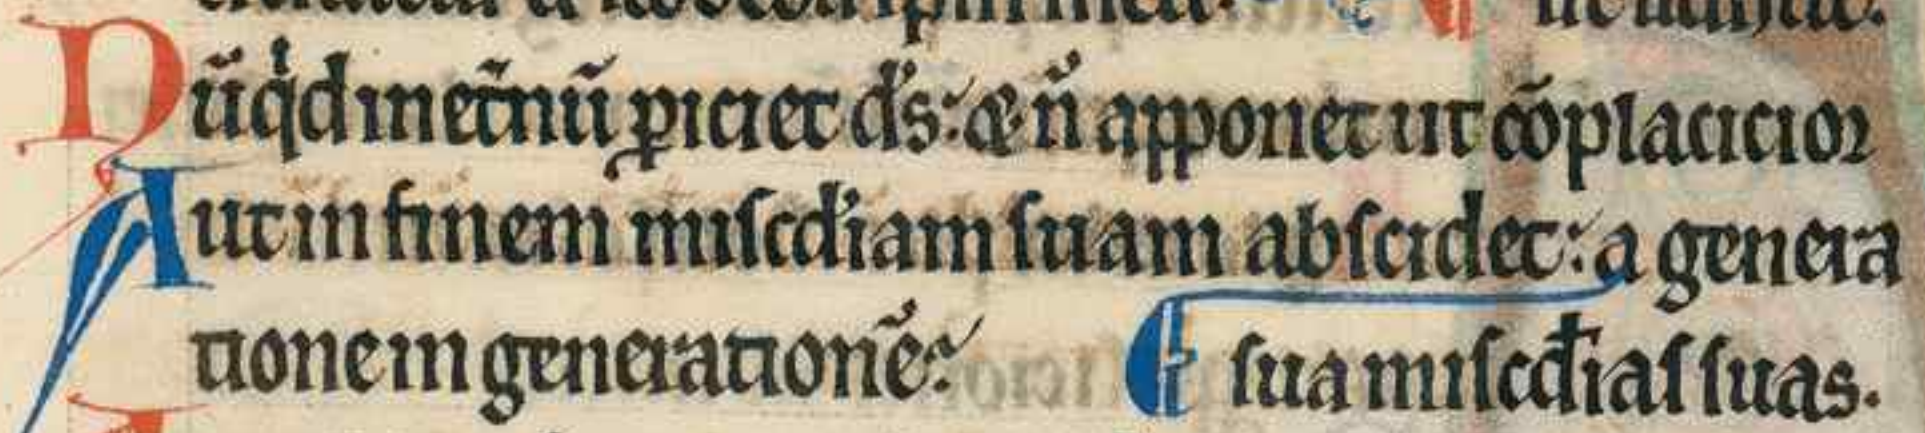 Nũq̇d in et̃nũ ꝑiciet d's: & ñ apponet ut cõplacicior
Aut in finem miſcd'iam ſuam abſcidet: a genera
tione in generationẽ: ſua miſcd'iaſ ſuas.